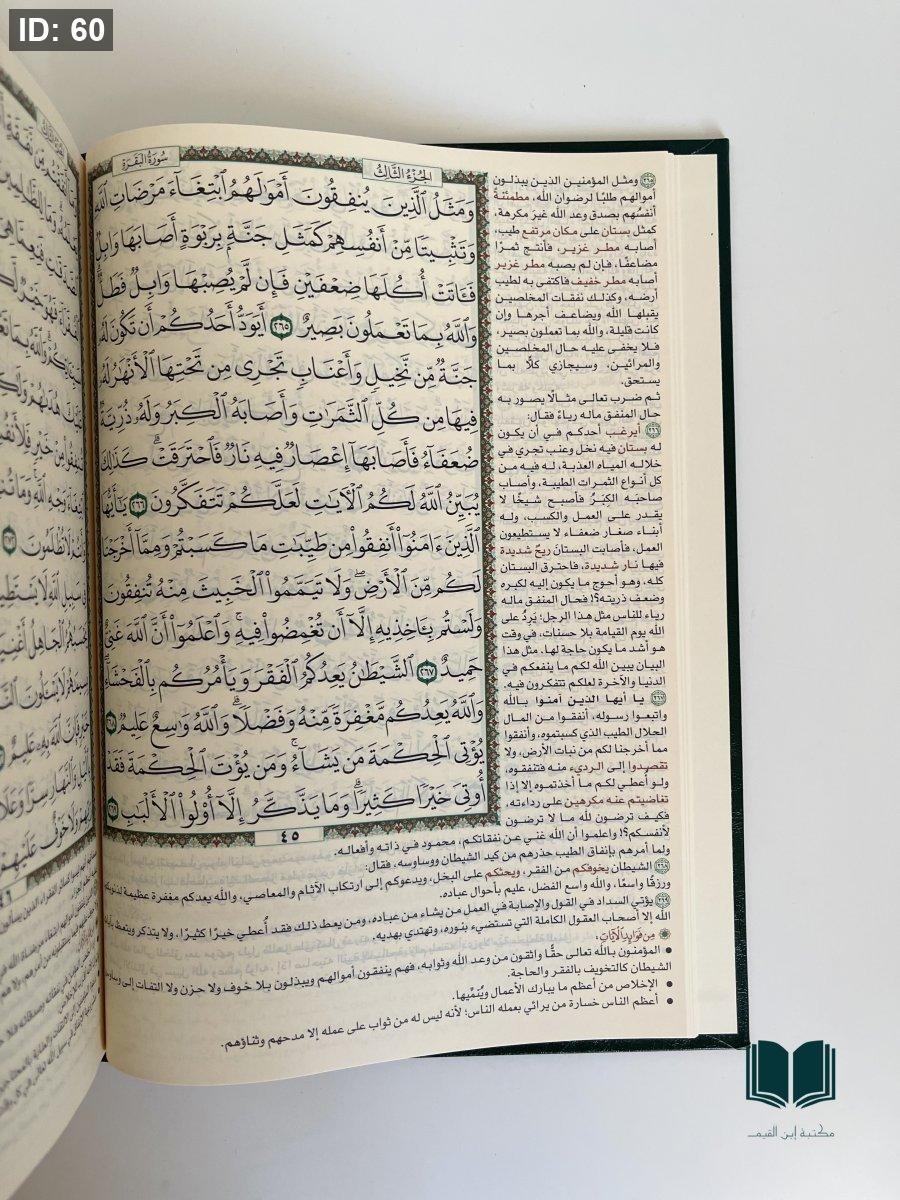 ID: 60
الجزء الثالث
سورة البقرة
وَمَثَلُ ٱلَّذِينَ يُنفِقُونَ أَمْوَٰلَهُمُ ٱبْتِغَآءَ مَرْضَاتِ ٱللَّهِ
وَتَثْبِيتًا مِّنْ أَنفُسِهِمْ كَمَثَلِ جَنَّةٍۭ بِرَبْوَةٍ أَصَابَهَا وَابِلٌ
فَـَٔاتَتْ أُكُلَهَا ضِعْفَيْنِ فَإِن لَّمْ يُصِبْهَا وَابِلٌ فَطَلٌّ
وَٱللَّهُ بِمَا تَعْمَلُونَ بَصِيرٌ ٢٦٥ أَيَوَدُّ أَحَدُكُمْ أَن تَكُونَ لَهُۥ
جَنَّةٌ مِّن نَّخِيلٍ وَأَعْنَابٍ تَجْرِى مِن تَحْتِهَا ٱلْأَنْهَٰرُ لَهُۥ
فِيهَا مِن كُلِّ ٱلثَّمَرَٰتِ وَأَصَابَهُ ٱلْكِبَرُ وَلَهُۥ ذُرِّيَّةٌ
ضُعَفَآءُ فَأَصَابَهَآ إِعْصَارٌ فِيهِ نَارٌ فَٱحْتَرَقَتْ ۗ كَذَٰلِكَ
يُبَيِّنُ ٱللَّهُ لَكُمُ ٱلْـَٔايَٰتِ لَعَلَّكُمْ تَتَفَكَّرُونَ ٢٦٦ يَٰٓأَيُّهَا
ٱلَّذِينَ ءَامَنُوٓا۟ أَنفِقُوا۟ مِن طَيِّبَٰتِ مَا كَسَبْتُمْ وَمِمَّآ أَخْرَجْنَا
لَكُم مِّنَ ٱلْأَرْضِ ۖ وَلَا تَيَمَّمُوا۟ ٱلْخَبِيثَ مِنْهُ تُنفِقُونَ
وَلَسْتُم بِـَٔاخِذِيهِ إِلَّآ أَن تُغْمِضُوا۟ فِيهِ ۚ وَٱعْلَمُوٓا۟ أَنَّ ٱللَّهَ غَنِىٌّ
حَمِيدٌ ٢٦٧ ٱلشَّيْطَٰنُ يَعِدُكُمُ ٱلْفَقْرَ وَيَأْمُرُكُم بِٱلْفَحْشَآءِ ۖ
وَٱللَّهُ يَعِدُكُم مَّغْفِرَةً مِّنْهُ وَفَضْلًا ۗ وَٱللَّهُ وَٰسِعٌ عَلِيمٌ ٢٦٨
يُؤْتِى ٱلْحِكْمَةَ مَن يَشَآءُ ۚ وَمَن يُؤْتَ ٱلْحِكْمَةَ فَقَدْ
أُوتِىَ خَيْرًا كَثِيرًا ۗ وَمَا يَذَّكَّرُ إِلَّآ أُو۟لُوا۟ ٱلْأَلْبَٰبِ ٢٦٩
٤٥
٢٦٥ ومثل المؤمنين الذين يبذلون
أموالهم طلبًا لرضوان الله، مطمئنةً
أنفسُهم بصدق وعد الله غيرَ مكرهة،
كمثل بستان على مكان مرتفع طيب،
أصابه مطر غزير، فأنتج ثمرًا
مضاعفًا، فإن لم يصبه مطر غزير
أصابه مطر خفيف فاكتفى به لطيب
أرضه، وكذلك نفقات المخلصين
يقبلها الله ويضاعف أجرها وإن
كانت قليلة، والله بما تعملون بصير،
فلا يخفى عليه حال المخلصين
والمرائين، وسيجازي كلًّا بما
يستحق.
ثم ضرب تعالى مثالًا يصور به
حال المنفق ماله رياءً فقال:
٢٦٦ أيرغب أحدكم في أن يكون
له بستان فيه نخل وعنب تجري في
خلاله المياه العذبة، له فيه من
كل أنواع الثمرات الطيبة، وأصاب
صاحبَه الكِبَرُ فأصبح شيخًا لا
يقدر على العمل والكسب، وله
أبناء صغار ضعفاء لا يستطيعون
العمل، فأصابت البستانَ ريحٌ شديدة
فيها نار شديدة، فاحترق البستان
كله، وهو أحوج ما يكون إليه لكبره
وضعف ذريته؟! فحال المنفق ماله
رياء للناس مثل هذا الرجل؛ يَرِدُ على
الله يوم القيامة بلا حسنات، في وقت
هو أشد ما يكون حاجة لها. مثل هذا
البيان يبين الله لكم ما ينفعكم في
الدنيا والآخرة لعلكم تتفكرون فيه.
٢٦٧ يا أيها الذين آمنوا بالله
واتبعوا رسوله، أنفقوا من المال
الحلال الطيب الذي كسبتموه، وأنفقوا
مما أخرجنا لكم من نبات الأرض، ولا
تقصِدوا إلى الرديء منه فتنفقوه،
ولو أُعطي لكم ما أخذتموه إلا إذا
تغاضيتم عنه مكرهين على رداءته،
فكيف ترضون لله ما لا ترضون
لأنفسكم؟! واعلموا أن الله غني عن نفقاتكم، محمود في ذاته وأفعاله.
ولما أمرهم بإنفاق الطيب حذرهم من كيد الشيطان ووساوسه، فقال:
٢٦٨ الشيطان يخوفكم من الفقر، ويحثكم على البخل، ويدعوكم إلى ارتكاب الآثام والمعاصي، والله يعدكم مغفرة عظيمة لذنوبكم،
ورزقًا واسعًا، والله واسع الفضل، عليم بأحوال عباده.
٢٦٩ يؤتي السداد في القول والإصابة في العمل من يشاء من عباده، ومن يعط ذلك فقد أُعطي خيرًا كثيرًا، ولا يتذكر ويتعظ بآيات
الله إلا أصحاب العقول الكاملة التي تستضيء بنوره، وتهتدي بهديه.
من فوائد الآيات:
• المؤمنون بالله تعالى حقًّا واثقون من وعد الله وثوابه، فهم ينفقون أموالهم ويبذلون بلا خوف ولا حزن ولا التفات إلى وساوس
الشيطان كالتخويف بالفقر والحاجة.
• الإخلاص من أعظم ما يبارك الأعمال ويُنَمِّيها.
• أعظم الناس خسارة من يرائي بعمله الناس؛ لأنه ليس له من ثواب على عمله إلا مدحهم وثناؤهم.
مكتبة إبن القيم